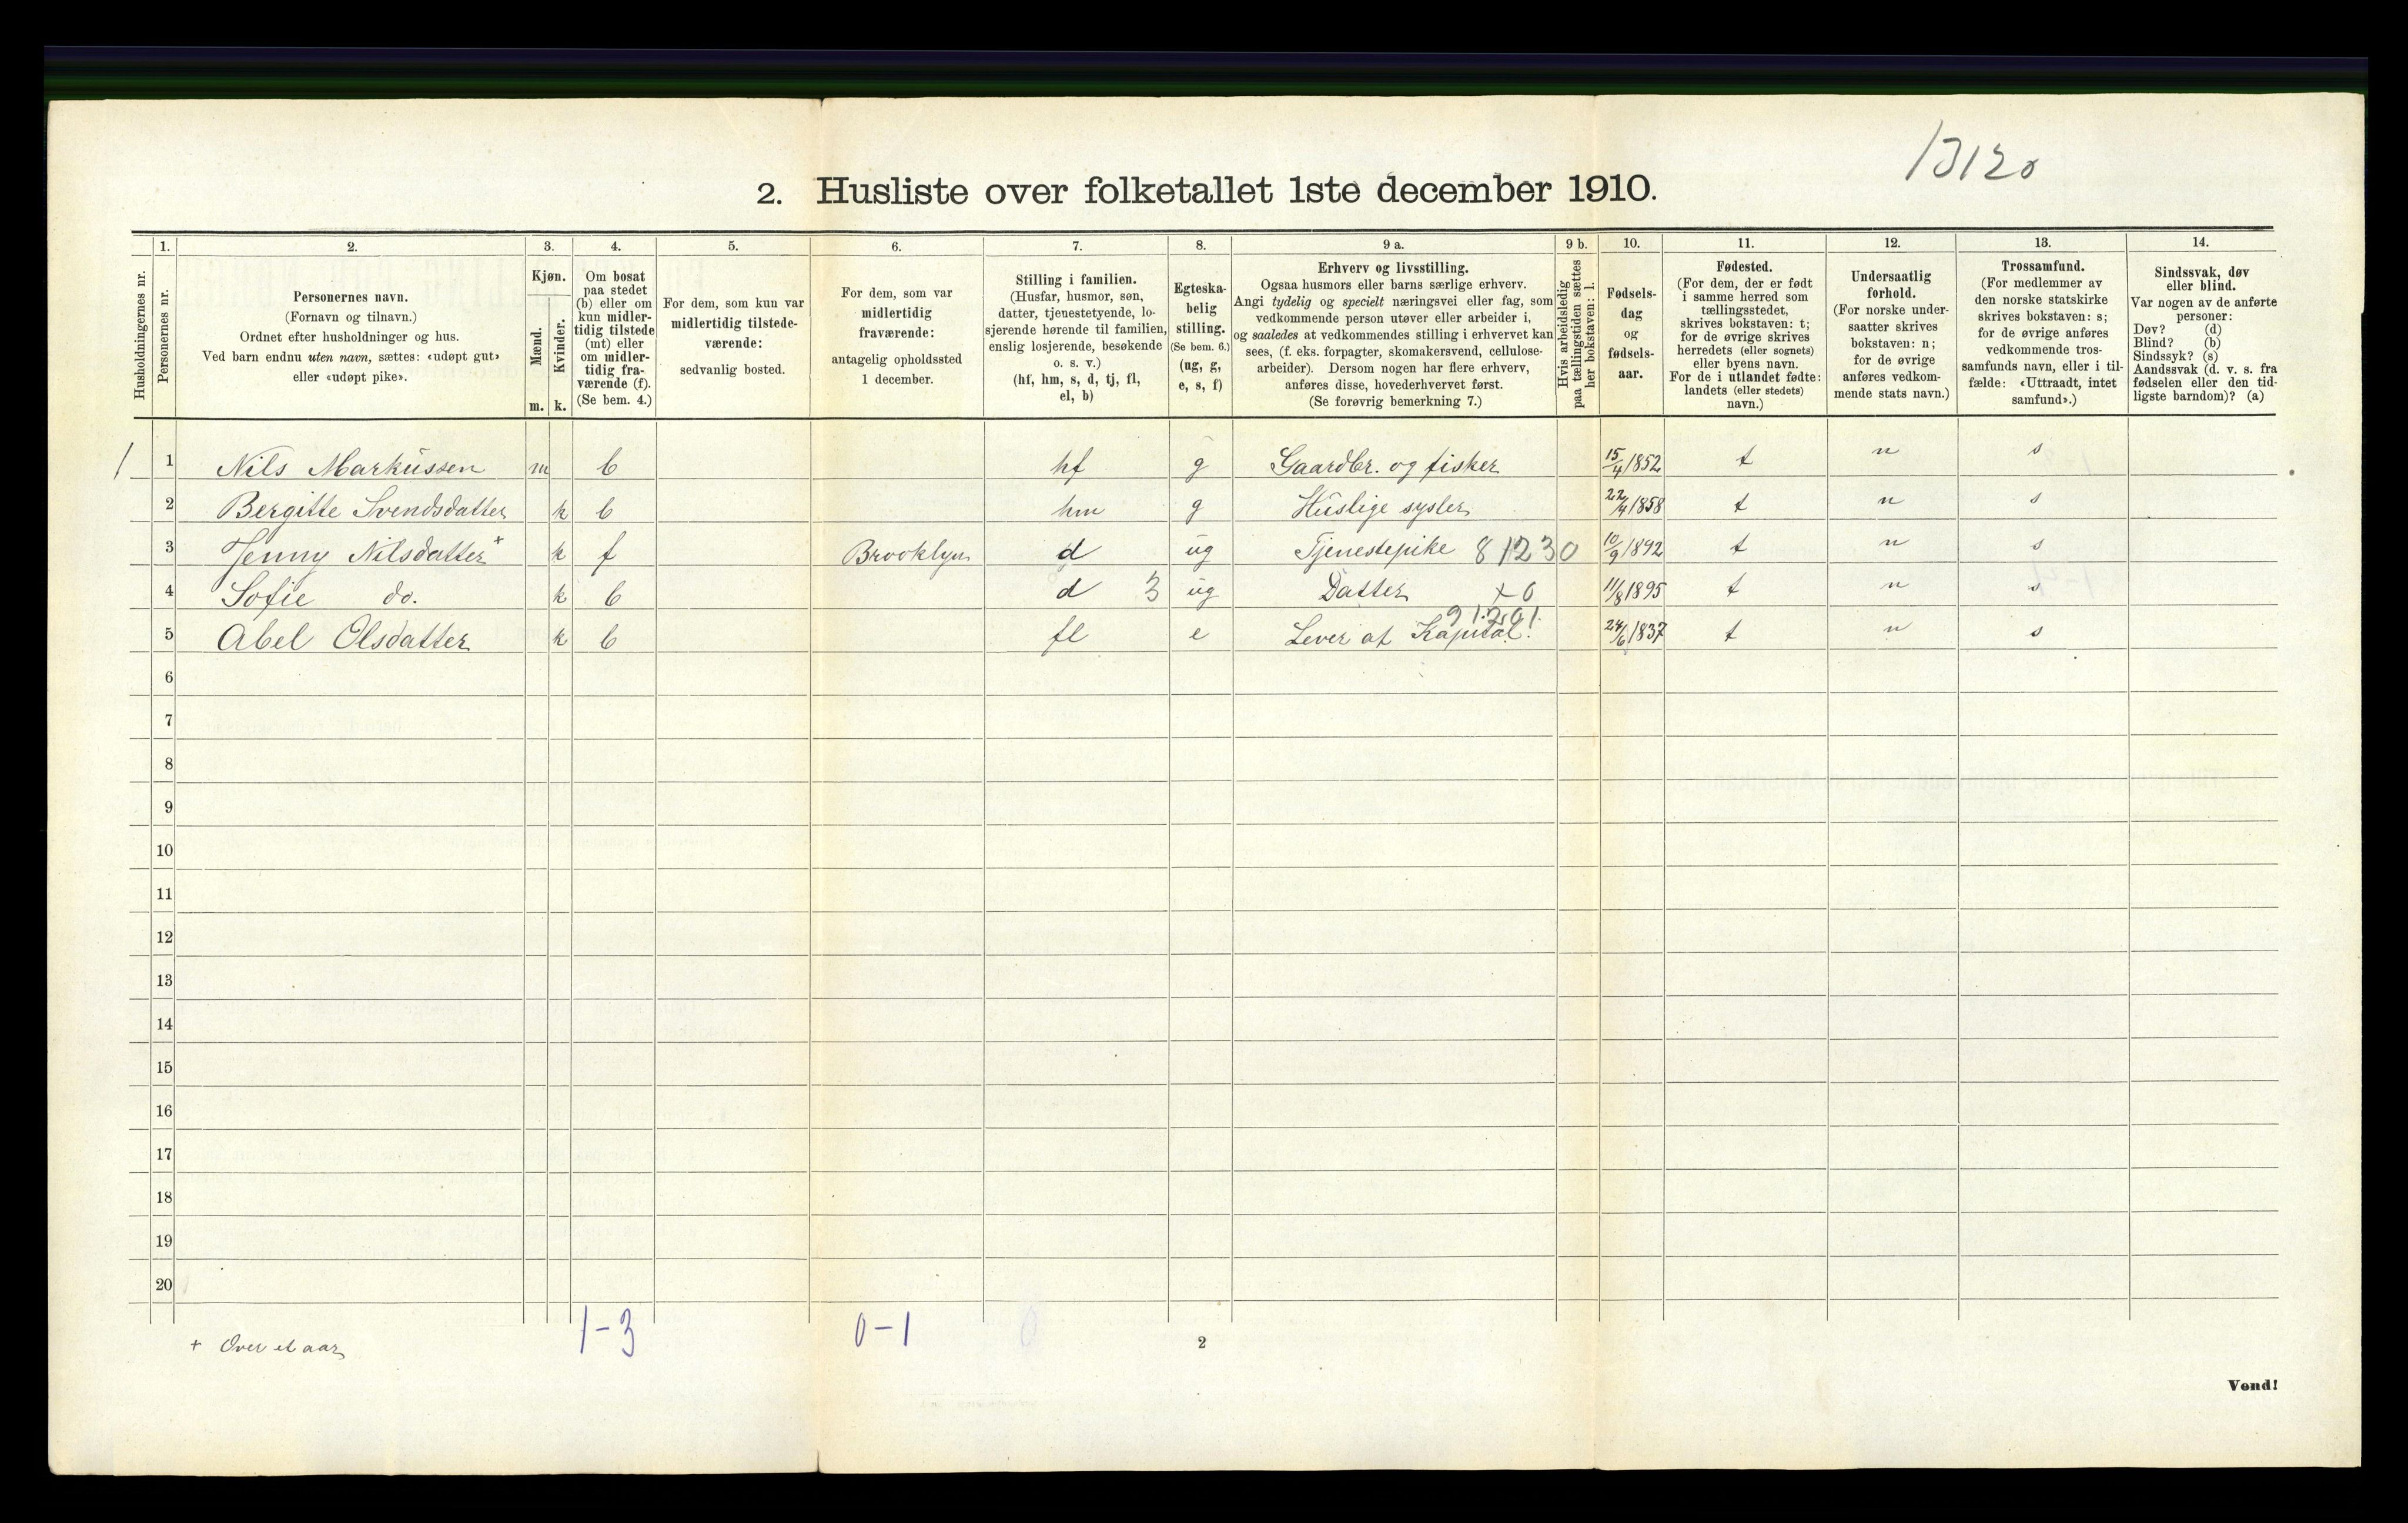 13120
2. Husliste over folketallet 1ste december 1910.
Husholdningernes nr.
1.
Personernes nr.
2.
Personernes navn.
(Fornavn og tilnavn.)
Ordnet efter husholdninger og hus.
Ved barn endnu uten navn, sættes: «udøpt gut»
eller «udøpt pike».
3.
Kjøn.
Mænd.
Kvinder.
m. k.
4.
Om bosat
paa stedet
(b) eller om
kun midler-
tidig tilstede
(mt) eller
om midler-
tidig fra-
værende (f).
(Se bem. 4.)
5.
For dem, som kun var
midlertidig tilstede-
værende:
sedvanlig bosted.
6.
For dem, som var
midlertidig
fraværende:
antagelig opholdssted
1 december.
7.
Stilling i familien.
(Husfar, husmor, søn,
datter, tjenestetyende, lo-
sjerende hørende til familien,
enslig losjerende, besøkende
o. s. v.)
(hf, hm, s, d, tj, fl,
el, b)
8.
Egteska-
belig
stilling.
(Se bem. 6.)
(ug, g,
e, s, f)
9 a.
Erhverv og livsstilling.
Ogsaa husmors eller barns særlige erhverv.
Angi tydelig og specielt næringsvei eller fag, som
vedkommende person utøver eller arbeider i,
og saaledes at vedkommendes stilling i erhvervet kan
sees, (f. eks. forpagter, skomakersvend, cellulose-
arbeider). Dersom nogen har flere erhverv,
anføres disse, hovederhvervet først.
(Se forøvrig bemerkning 7.)
9 b.
Hvis arbeidsledig
paa tællingstiden sættes
her bokstaven: l.
10.
Fødsels-
dag
og
fødsels-
aar.
11.
Fødested.
(For dem, der er født
i samme herred som
tællingsstedet,
skrives bokstaven: t;
for de øvrige skrives
herredets (eller sognets)
eller byens navn.
For de i utlandet fødte:
landets (eller stedets)
navn.)
12.
Undersaatlig
forhold.
(For norske under-
saatter skrives
bokstaven: n;
for de øvrige
anføres vedkom-
mende stats navn.)
13.
Trossamfund.
(For medlemmer av
den norske statskirke
skrives bokstaven: s;
for de øvrige anføres
vedkommende tros-
samfunds navn, eller i til-
fælde: «Uttraadt, intet
samfund».)
14.
Sindssvak, døv
eller blind.
Var nogen av de anførte
personer:
Døv? (d)
Blind? (b)
Sindssyk? (s)
Aandssvak (d. v. s. fra
fødselen eller den tid-
ligste barndom)? (a)
1 1 Nils Markussen m b hf g Gaardbr. og fisker 15/4 1852 t n s
2 Bergitte Svendsdatter k b hm g Huslige sysler 22/4 1858 t n s
3 Jenny Nilsdatter + k f Brooklyn d ug Tjenestepike 81230 10/9 1892 t n s
4 Sofie do. k b d 3 ug Datter +0 11/8 1895 t n s
5 Abel Olsdatter k b fl e Lever af Kapital. 24/6 1837 t n s
6
7
8
9
10
11
12
13
14
15
16
17
18
19
20
1-3 0-1 0
+ Over et aar
2
Vend!